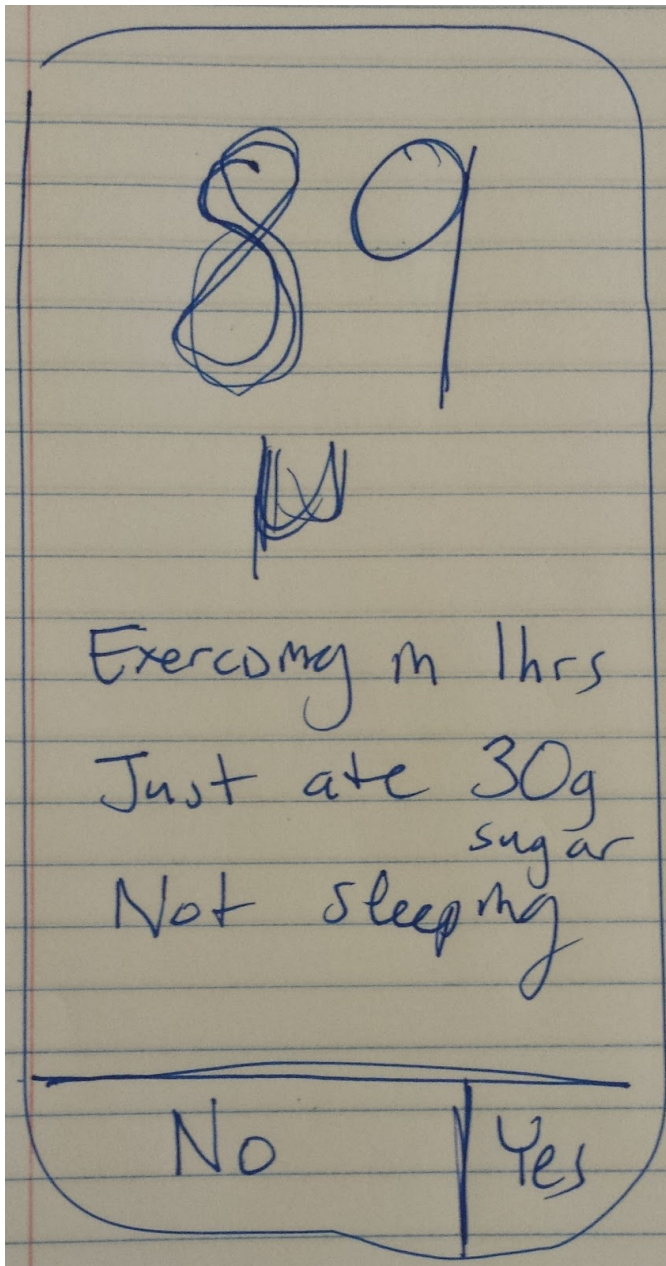 89
Exercising in 1hrs
Just ate 30g
sugar
Not sleeping
No Yes